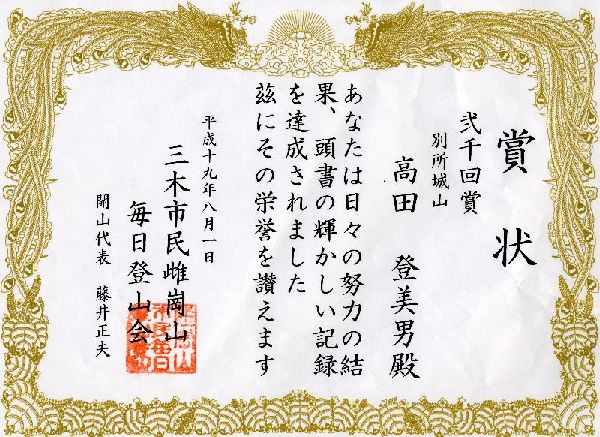 賞状
弐千回賞
別所城山
高田 登美男殿
あなたは日々の努力の結
果、頭書の輝かしい記録
を達成されました
茲にその栄誉を讃えます
平成十九年八月一日
三木市民雌崗山
毎日登山会
開山代表 藤井正夫